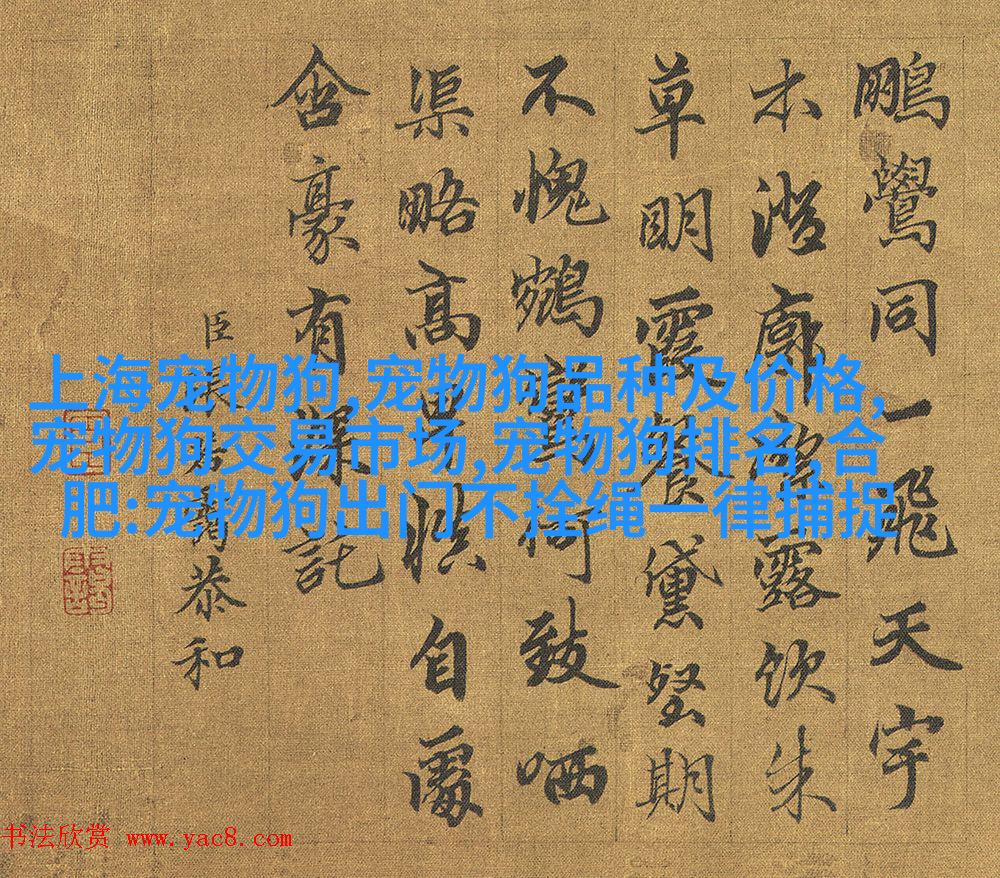 上海宠物狗,宠物狗品种及价格,
宠物狗交易市场,宠物狗排名,合
肥:宠物狗出门不拴绳一律捕捉
鵬鷽同一飛天宇
澄廓露飲朱
草明霞餐黛堅期
不愧致哂
渠略高自
含豪有深託
臣恭和
书法欣赏 www.yac8.com